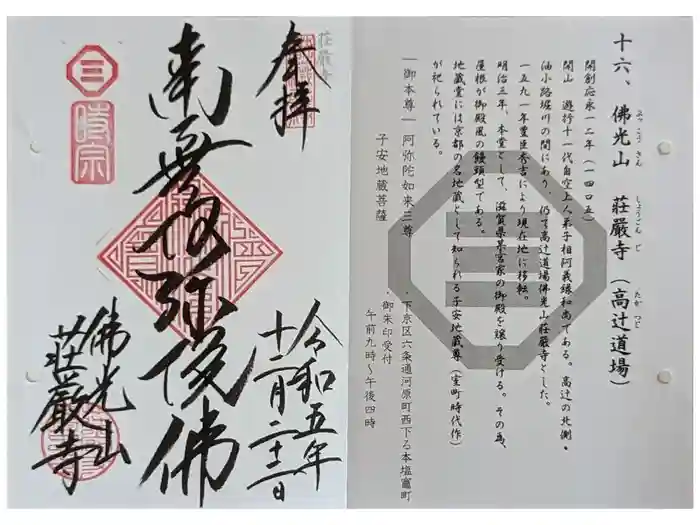 十六、佛光山 荘嚴寺(高辻道場)
ぶっこうさん しょうごんじ たかつじ
開創応永一二年(一四〇五)
開山 遊行十一代自空上人弟子相阿義縁和尚である。高辻の北側・
油小路堀川の間にあり、仍て高辻道場佛光山荘嚴寺とした。
一五九一年豊臣秀吉により現在地に移転。
明治三年、本堂として、滋賀県某宮家の御殿を譲り受ける。その為、
屋根が御殿風の饅頭型である。
地蔵堂には京都の名地蔵として知られる子安地蔵尊(室町時代作)
が祀られている。
―御本尊― 阿弥陀如来三尊
子安地蔵菩薩
・下京区六条通河原町西下る本塩竈町
・御朱印受付
午前九時~午後四時
荘厳寺
奉拝
南無阿弥陀佛
令和五年
十二月二十二日
三
時宗
佛光山
荘嚴寺